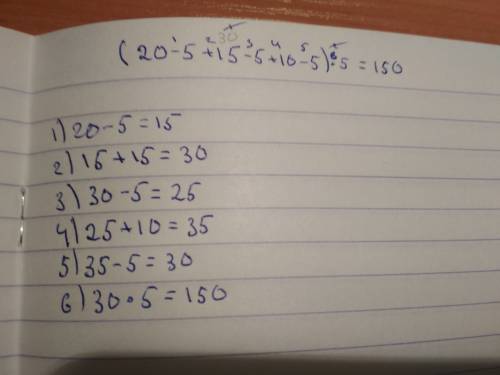 30
1 2 3 4 5 6
(20-5+15-5+10-5)·5=150
1) 20-5=15
2) 15+15=30
3) 30-5=25
4) 25+10=35
5) 35-5=30
6) 30·5=150